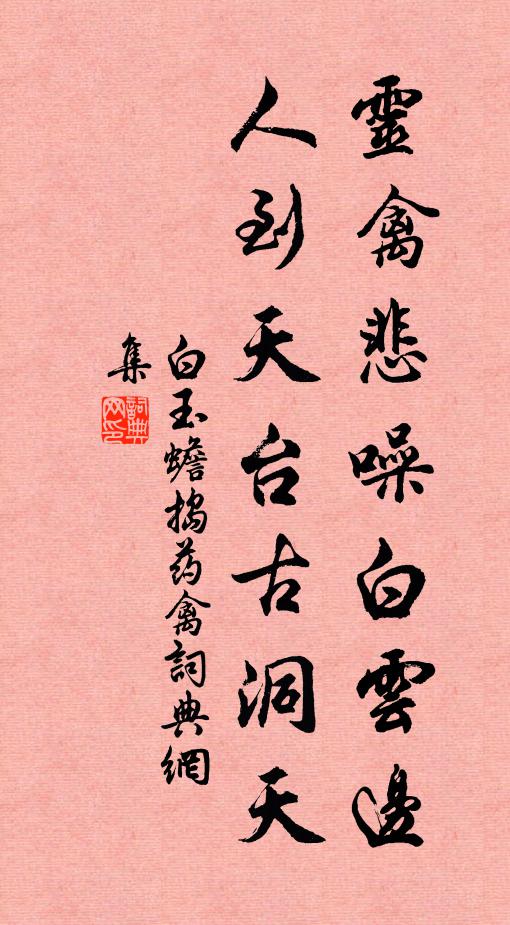 靈禽悲噪白雲邊
人到天台古洞天
白玉蟾搗药禽詞典網
集
詞典
网印